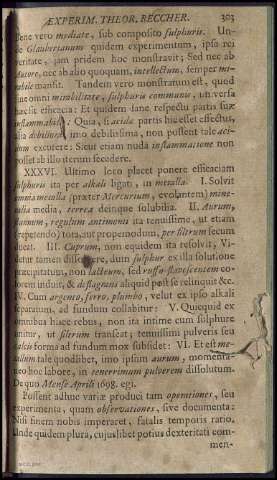 ÆXPERIM. THEOR. BECCHER. 303
bene vero mediate, sub composito sulphuris. Un-
de Glauberianum quidem experimentum, ipsa rei
veritate, jam pridem hoc monstravit; Sed nec ab
Autore, nec ab alio quoquam, intellectum, semper
mansit. Tandem vero monstratum est, quod
omni mirabilitate, sulphuris communis, universa
hærescit efficacia: Et quidem sane respectu partis suæ
inflammabilis: Quia, si acida partis hic esset effectus,
debilior, imo debilissima, non possent tale
excutere: Sicut etiam nuda inflammatione non
posset ab illo iterum secedere.
XXXVI. Ultimo loco placet ponere efficaciam
sulphuris ita per alkali ligati, in metalla. I. Solvit
omnia metalla (præter Mercurium, evolantem)
media, terrea deinque solubilia. II. Aurum,
regulum antimonii ita tenuissime, ut etiam
(repetendo) tota, aut propemodum, per filtrum secum
ducat. III. Cuprum, non equidem ita resolvit, Vi-
detur tamen dissolvere, dum sulphur ex illa solutione
præcipitatum, non lacteum, sed ruffo-flavescentem co-
lorem induit, & deflagrans aliquid post se relinquit &c.
IV. Cum argento, ferro, plumbo, velut ex ipso alkali
separatum, ad fundum collabitur: V. Quicquid ex
omnibus hisce rebus, non ita intime cum sulphure
unitur, ut filtrum transeat; tenuissimi pulveris seu
calcis forma ad fundum mox subsidet: VI. Et est
tale quodlibet, imo ipsum aurum, momenta-
neo hoc labore, in tenerrimum pulverem dissolutum.
De quo Mense Aprili 1698. egi.
Possent adhuc variæ produci tam operationes, seu
experimenta, quam observationes, sive documenta:
Nisi finem nobis imperaret, fatalis temporis ratio.
Unde quidem plura, cujuslibet potius dexteritati com-
men-